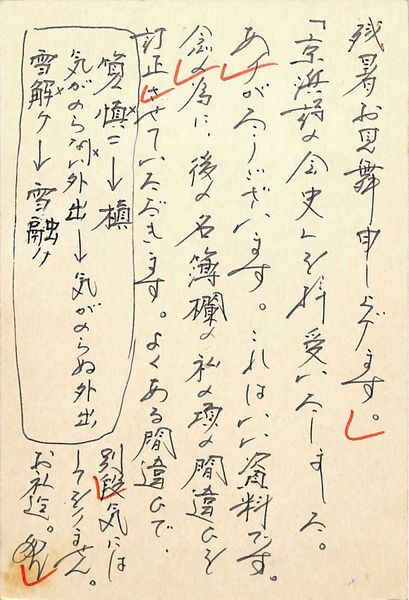 残暑お見舞申し上げます。
「京浜詩の会史」を拝受いたしました。
ありがとうございます。これはいい資料です。
念の為に、後の名簿欄の私の項の間違ひを
訂正させていただきます。よくある間違ひで、
別段気には
してゐません。
お礼迄。
筧慎二→槙
気がのらない外出→気がのらぬ外出
雪解ケ→雪融ケ